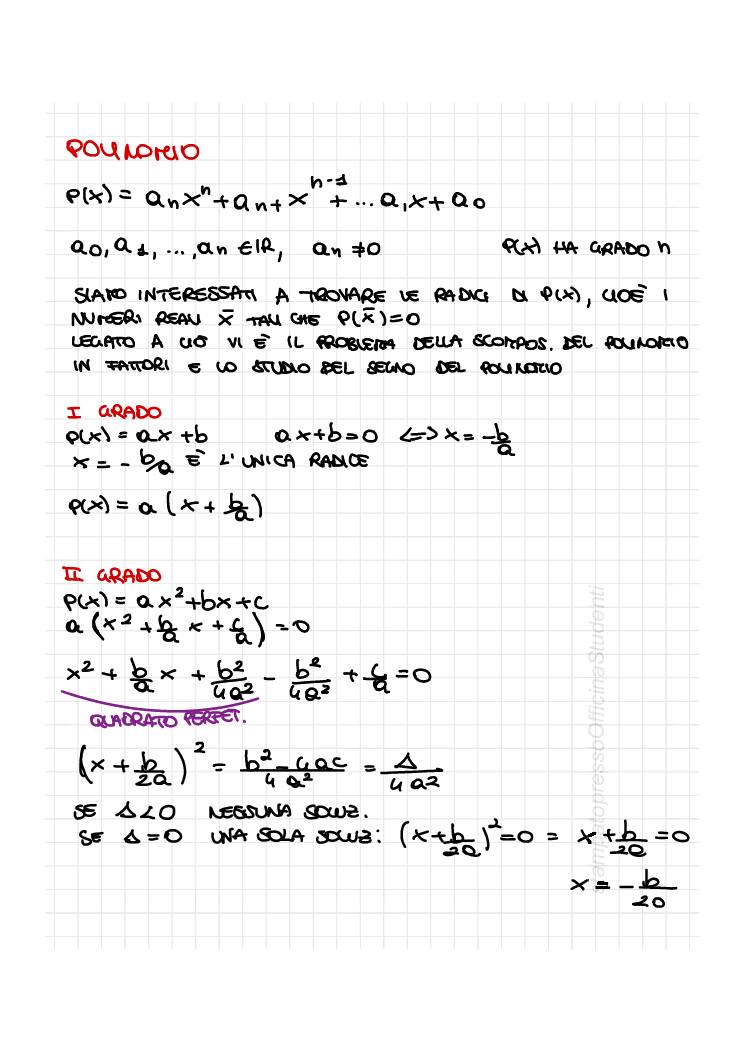 POLINOMIO
P(x) = aₙxⁿ + aₙ₊ xⁿ⁻¹ + ... a₁x + a₀
a₀, a₁, ..., aₙ ∈ ℝ, aₙ ≠ 0 P(x) HA GRADO n
SIAMO INTERESSATI A TROVARE LE RADICI DI P(x), CIOÈ I
NUMERI REALI x̄ TALI CHE P(x̄) = 0
LEGATO A CIÒ VI È IL PROBLEMA DELLA SCOMPOS. DEL POLINOMIO
IN FATTORI E LO STUDIO DEL SEGNO DEL POLINOMIO
I GRADO
P(x) = ax + b ax + b = 0 <=> x = -b/a
x = - b/a È L'UNICA RADICE
P(x) = a (x + b/a)
II GRADO
P(x) = ax² + bx + c
a (x² + b/a x + c/a) = 0
x² + b/a x + b²/4a² - b²/4a² + c/a = 0
QUADRATO PERFET.
(x + b/2a)² = b² - 4ac/4a² = Δ/4a²
SE Δ < 0 NESSUNA SOLUZ.
SE Δ = 0 UNA SOLA SOLUZ: (x + b/2a)² = 0 = x + b/2a = 0
x = - b/2a